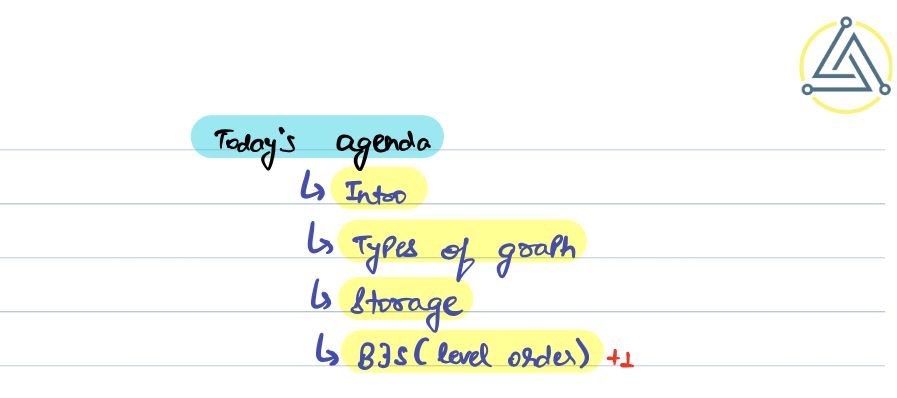 Today's agenda
↳ Intro
↳ Types of graph
↳ Storage
↳ BFS (level order) +1